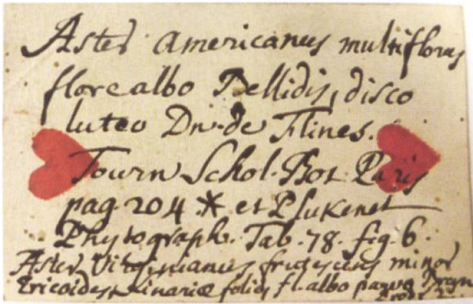 Aster americanus multiflorus
flore albo Bellidis, disco
luteo Dn. de Flines.
Tourn Schol. Bot. Paris
pag 204 * et Plukenet
Phytograph. Tab. 78. fig 6.
Aster Virginianus fruticosus minor
Ericoides Linariæ folijs fl. albo parvo